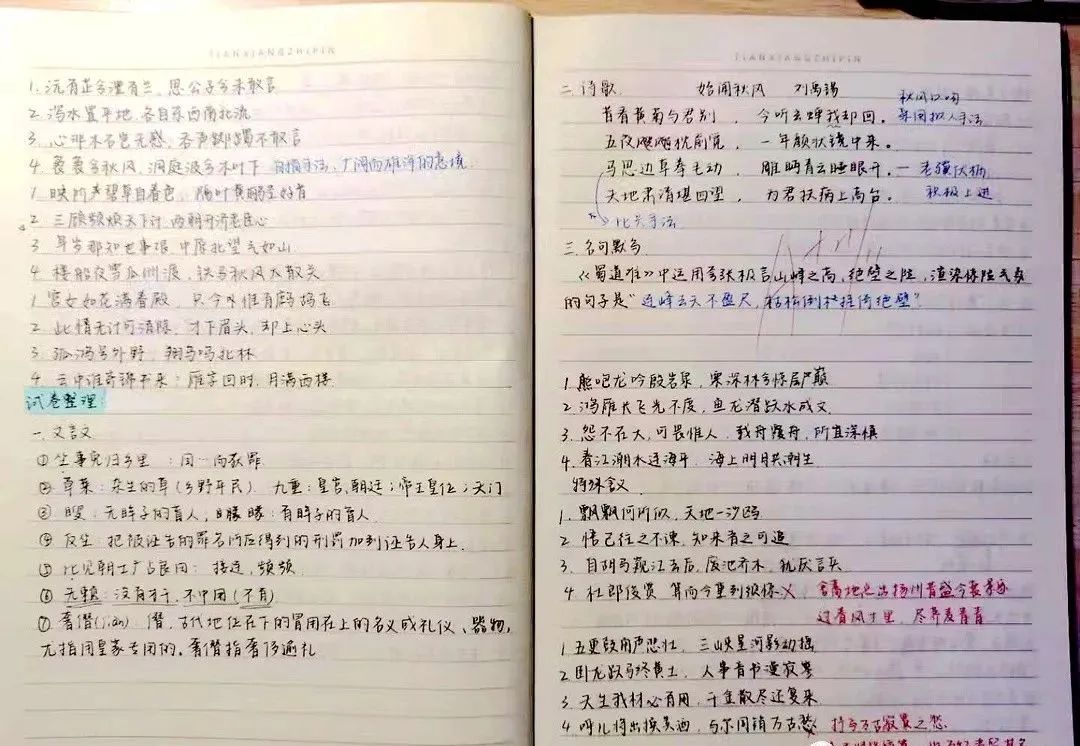 TIANXIANGZHIPIN
1. 沅有芷兮澧有兰，思公子兮未敢言
2. 泻水置平地，各自东西南北流
3. 心非木石岂无感，吞声踯躅不敢言
4. 袅袅兮秋风，洞庭波兮木叶下 白描手法，广阔而雄浑的意境
1. 映阶碧草自春色，隔叶黄鹂空好音
2. 三顾频烦天下计，两朝开济老臣心
3 早岁那知世事艰，中原北望气如山
4 楼船夜雪瓜洲渡，铁马秋风大散关
1 宫女如花满春殿，只今惟有鹧鸪飞
2. 此情无计可消除，才下眉头，却上心头
3. 孤鸿号外野，翔鸟鸣北林
4. 云中谁寄锦书来；雁字回时，月满西楼
试卷整理：
一. 文言文
① 坐事免归乡里：因一向获罪
② 草莱：杂生的草(乡野平民) 九重：皇宫，朝廷；帝王皇位；天门
③ 瞍：无眸子的盲人，曚：有眸子的盲人
④ 反坐：把被诬告的罪名所应得到的刑罚加到诬告人身上.
⑤ 比见朝士广占良田：接连，频频
⑥ 无赖：没有才干，不中用(不肖)
⑦ 奢僭(jiàn) 僭，古代地位在下的冒用在上的名义或礼仪、器物，
尤指用皇家专用的。奢僭指奢侈逾礼
TIANXIANGZHIPIN
二. 诗歌 始闻秋风 刘禹锡 秋风口吻
昔看黄菊与君别，今听玄蝉我却回。采用拟人手法
五夜飕飗枕前觉，一年颜状镜中来。
马思边草拳毛动，雕眄青云睡眼开。— 老骥伏枥
天地肃清堪四望，为君扶病上高台。 积极上进
比兴手法
三. 名句默写
《蜀道难》中运用夸张极言山峰之高，绝壁之险，渲染惊险气氛
的句子是“连峰去天不盈尺，枯松倒挂倚绝壁”
1. 熊咆龙吟殷岩泉，栗深林兮惊层巅
2. 鸿雁长飞光不度，鱼龙潜跃水成文
3. 怨不在大，可畏惟人，载舟覆舟，所宜深慎
4. 春江潮水连海平，海上明月共潮生
特殊含义
1. 飘飘何所似，天地一沙鸥
2. 悟已往之不谏，知来者之可追
3. 自胡马窥江去后，废池乔木，犹厌言兵
4. 杜郎俊赏 算而今重到须惊 × 含离地点出扬州昔盛今衰景象
过春风十里，尽荠麦青青
1 五更鼓角声悲壮，三峡星河影动摇
2 卧龙跃马终黄土，人事音书漫寂寥
3 天生我材必有用，千金散尽还复来
4 呼儿将出换美酒，与尔同销万古愁 抒写万古寂寞之愁